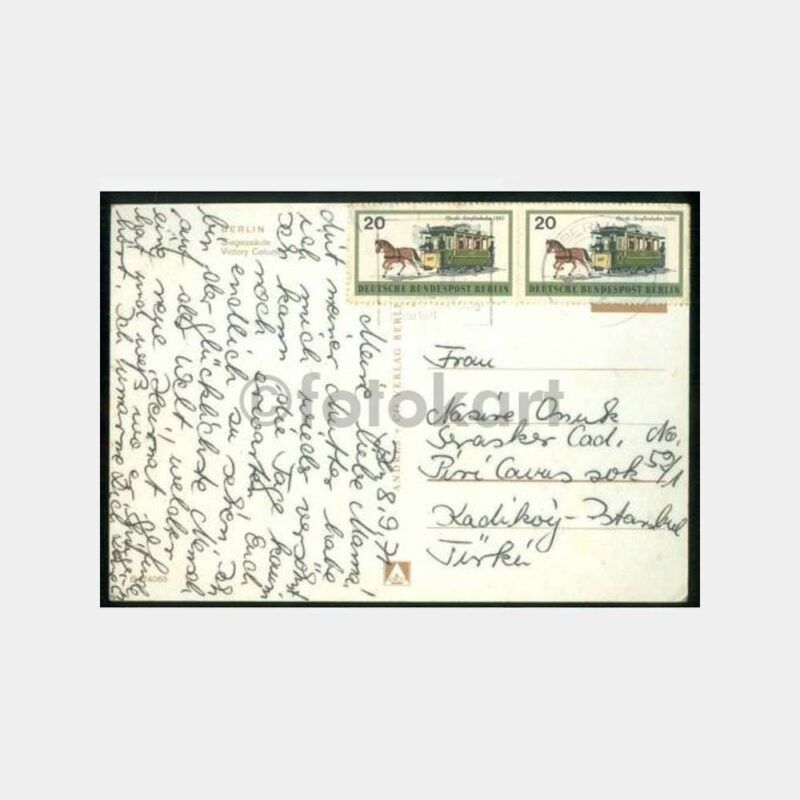 BERLIN
Siegessäule
Victory Column
20
Pferde-Straßenbahn 1880
DEUTSCHE BUNDESPOST BERLIN
20
Pferde-Straßenbahn 1880
DEUTSCHE BUNDESPOST BERLIN
8.9.71
Meine liebe Mama!
mit meiner Mutter habe
ich mich wieder versöhnt
Ich kann die Tage kaum
noch erwarten Euch
endlich zu sehen. Ich
bin der glücklichste Mensch
auf der Welt, welcher
eine neue Heimat gefunden
hat und weiß wo er
hört. Ich umarme Dich
VERLAG BERLIN
Frau
Osnuk
Serasker Cad. No.
Piri Cavus sok 59/1
Kadiköy-Istanbul
Türkei
©fotokart